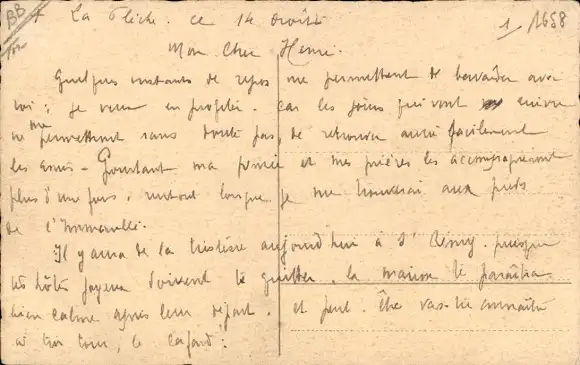 BB
La Flèche. ce 14 Août
1 1658
Mon Cher Henri.
Quelques instants de repos me permettent de bavarder avec
toi; je veux en profiter. Car les jours qui vont suivre
ne me permettront sans doute pas, de retrouver aussi facilement
les amis - Pourtant ma pensée et mes prières les accompagneront
plus d'une fois, surtout lorsque je me trouverai aux pieds
de l'Immaculée.
Il y aura de la tristesse aujourd'hui à St Rémy. puisque
tes hôtes joyeux doivent te quitter, la maison te paraîtra
bien calme après leur départ. et peut-être vas-tu connaître
à ton tour, le cafard!